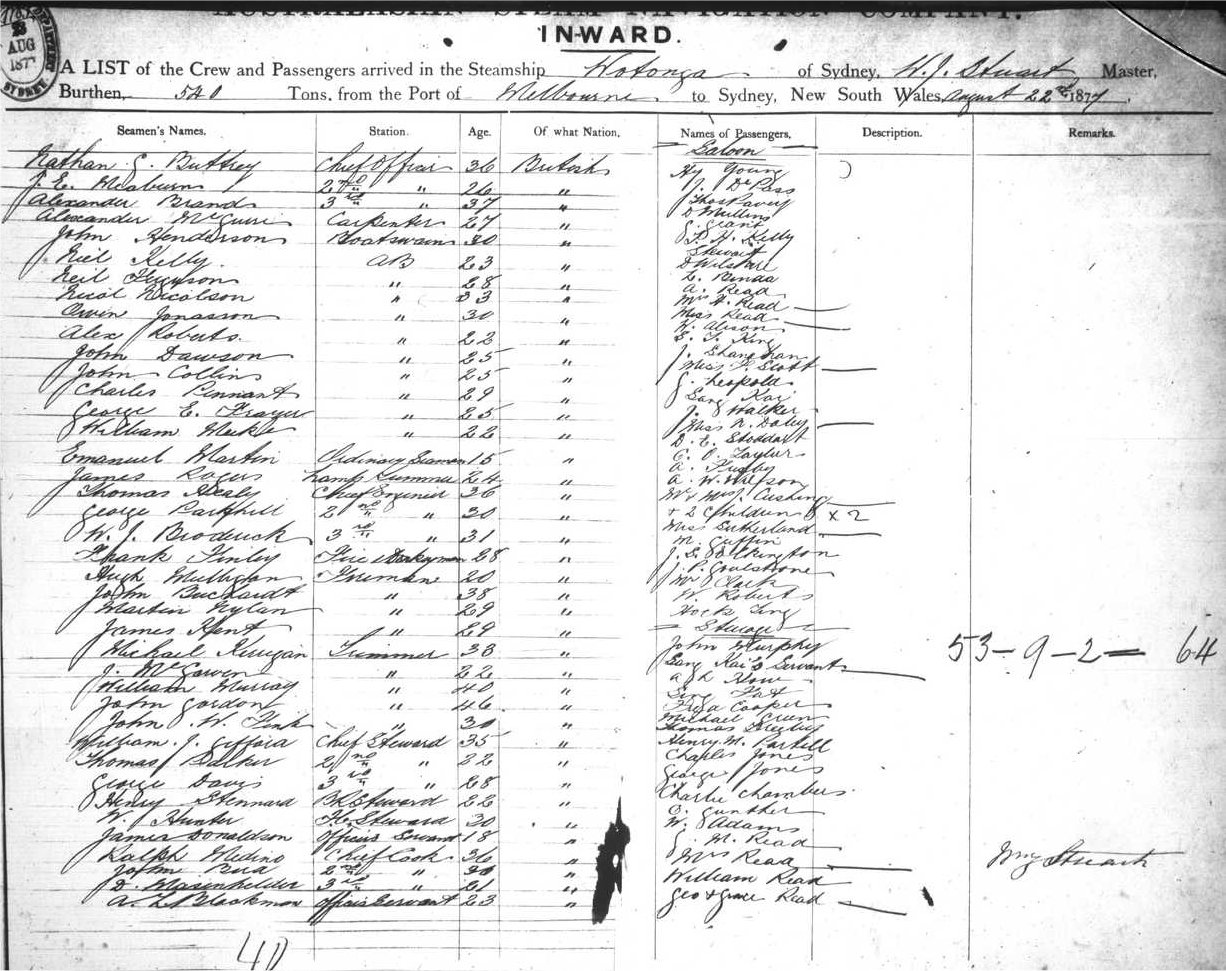 AUSTRALASIAN STEAM NAVIGATION COMPANY.
INWARD.
AUG
187
SYDNEY
A LIST of the Crew and Passengers arrived in the Steamship Wotonga of Sydney, W. J. Stuart, Master,
Burthen, 540 Tons, from the Port of Melbourne to Sydney, New South Wales, August 22nd 1877,
Seamen's Names. Station. Age. Of what Nation. Names of Passengers. Description. Remarks.
Saloon
Nathan G. Buttrey Chief Officer 36 British Hy Young
J. E. 2nd " 26 " J. De Pass
Alexander Brand 3rd " 37 " Thos Pavey
Alexander McGuire Carpenter 27 " D Mullins
John Henderson Boatswain 30 " Grant
P. H. Kelly
Niel Kelly AB 23 " Stewart
D Wilshire
Neil 28 " L. Binda
Nicol Nicolson " 33 " A. Read
Mrs H. Read
Owen Jonasson " 30 " Miss Read
Alex Roberts " 22 " K. Alison
E. F. King
John Dawson " 25 " J. Shanahan
John Collins " 25 " Miss F. Scott
Charles Pennant " 29 " G. Leopold
Sang Kai
George E. Frazer " 25 " J. Walker
William " 22 " Miss N. Daley
D. E. Stoddart
Emanuel Martin Ordinary Seaman 15 " C. O. Taylor
James Rogers Lamp Trimmer 24 " A.
Thomas Healy Chief Engineer 36 " A. W. Wilson
Mr & Mrs J. Cushing
George Parkhill 2nd " 30 " + 2 Children × 2
W. J. Broderick 3rd " 31 " Miss Sutherland
M. Guffin
Frank Finley Fire & Donkeyman 28 " J. S.
Hugh Mulligan Fireman 20 " J. P. Goulstone
John Buchardt " 38 " Mr Clark
W. Roberts
Martin Nylan " 29 " Hock Ling
James Kent " 29 " Steerage
Michael Kerrigan Trimmer 38 " John Murphy 53 - 9 - 2 = 64
J. McGowen " 22 " Sang Kai's Servant
William Murray " 40 " How
John Gordon " 46 " Cooper
John W. Fink " 30 " Michael
Thomas
William J. Gifford Chief Steward 35 " Henry M. Partill
Thomas 2nd " 22 " Charles Jones
George Davis 3rd " 28 " George Jones
Henry Stennard Bk Steward 22 " Charlie Chambers
W. Hunter F.C. Steward 30 " C. Gunther
W. Adams
James Donaldson Officers Servant 18 " G. M. Read
Ralph Medino Chief Cook 36 " Mrs Read Wm J Stuart
John Bird 2nd " " William Read
D. 3rd " 21 " Geo & Grace Read
A. L. Blackmon Officers Servant 23 "
40